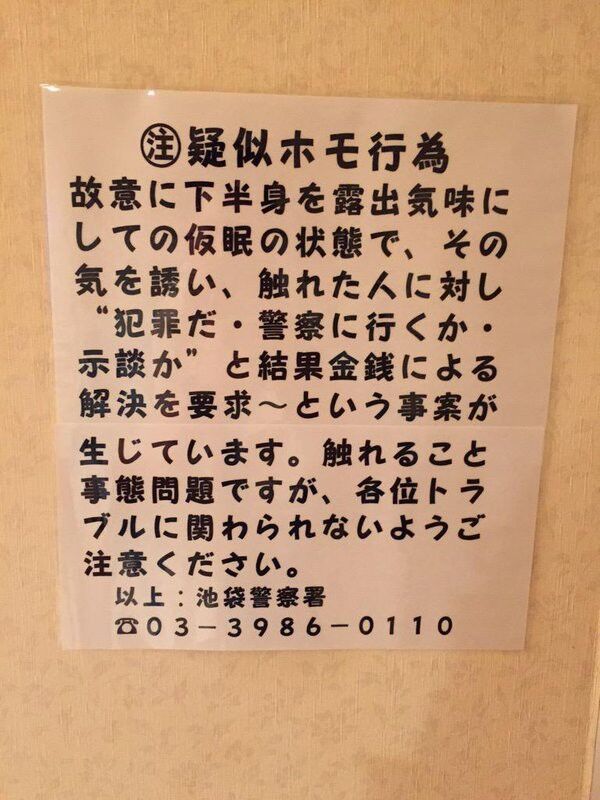 ㊟疑似ホモ行為
故意に下半身を露出気味に
しての仮眠の状態で、その
気を誘い、触れた人に対し
“犯罪だ・警察に行くか・
示談か”と結果金銭による
解決を要求～という事案が
生じています。触れること
事態問題ですが、各位トラ
ブルに関わられないようご
注意ください。
以上：池袋警察署
☎０３－３９８６－０１１０